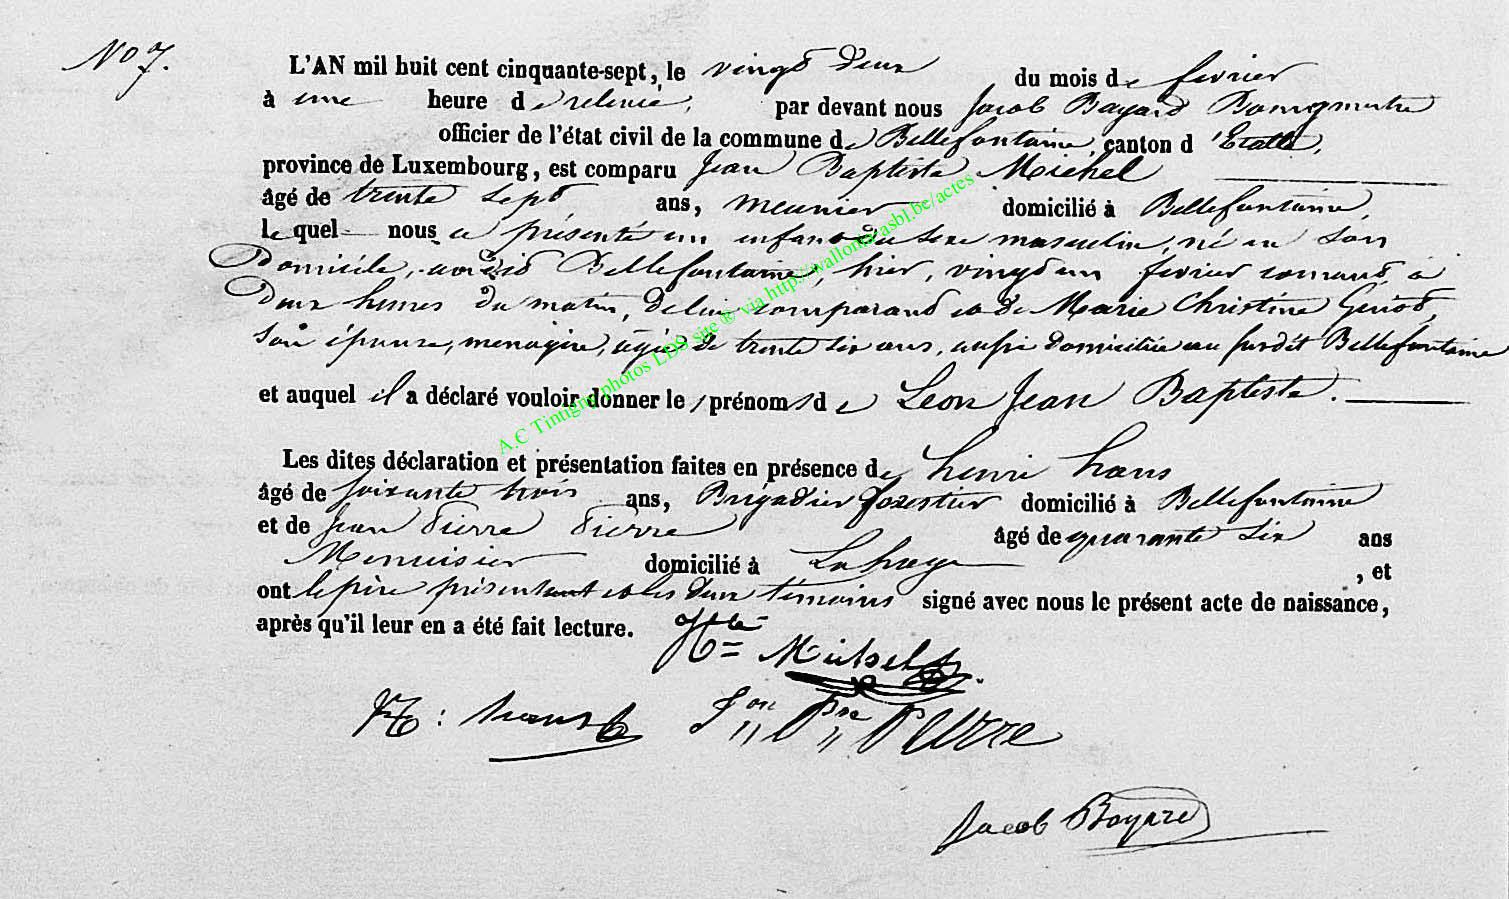 No 7.
L'AN mil huit cent cinquante-sept, le vingt deux du mois de fevrier
à une heure de relevée, par devant nous Jacob Bayard Bourgmestre
officier de l'état civil de la commune de Bellefontaine, canton d'Etalle,
province de Luxembourg, est comparu Jean Baptiste Michel
âgé de trente sept ans, meunier domicilié à Bellefontaine,
lequel nous a présenté un enfant du sexe masculin, né en son
Domicile, audit Bellefontaine, hier, vingt un fevrier courant, à
Deux heures du matin, de lui comparant et de Marie Christine Geniot,
son épouse, menagère, agée de trente six ans, aussi domiciliée au susdit Bellefontaine
et auquel il a déclaré vouloir donner les prénoms de Leon Jean Baptiste.
Les dites déclaration et présentation faites en présence de henri hans
âgé de soixante trois ans, Brigadier forestier domicilié à Bellefontaine
et de Jean Pierre Pierre âgé de quarante six ans
Menuisier domicilié à Lahage, et
ont le père présentant et les deux témoins signé avec nous le présent acte de naissance,
après qu'il leur en a été fait lecture.
Michel
H: hans Jean Prre Pierre
Jacob Bayard
A.C Tintigny photos LDS site ® via http://wallonia-asbl.be/actes